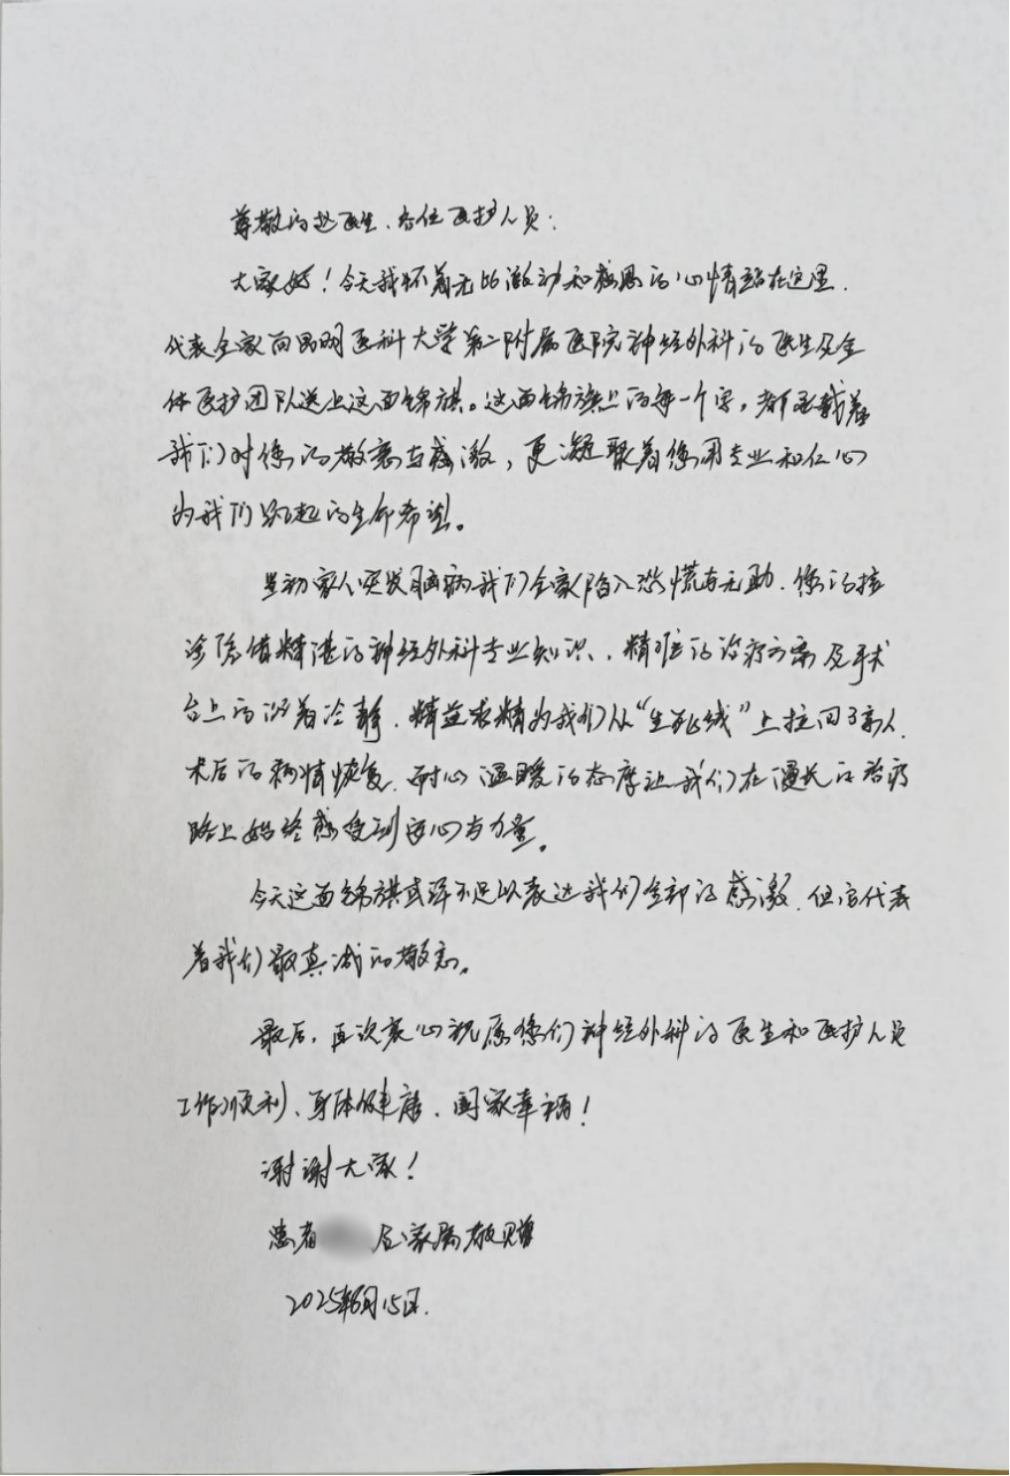 尊敬的赵医生、各位医护人员：
大家好！今天我怀着无比激动和感恩的心情站在这里.
代表全家向昆明医科大学第二附属医院神经外科的医生及全
体医护团队送上这面锦旗。这面锦旗上的每一个字，都承载着
我们对您的敬意与感激，更凝聚着您用专业和仁心
为我们织起的生命希望。
当初家人突发脑病我们全家陷入恐慌与无助.您的接
诊凭借精湛的神经外科专业知识、精准的治疗方案及手术
台上的沉着冷静.精益求精为我们从“生死线”上拉回了家人.
术后的病情恢复.耐心温暖的态度让我们在漫长的治疗
路上始终感受到安心与力量。
今天这面锦旗或许不足以表达我们全部的感激.但它代表
着我们最真诚的敬意。
最后.再次衷心祝愿您们神经外科的医生和医护人员
工作顺利、身体健康.阖家幸福！
谢谢大家！
患者 及家属敬赠
2025年6月15日.